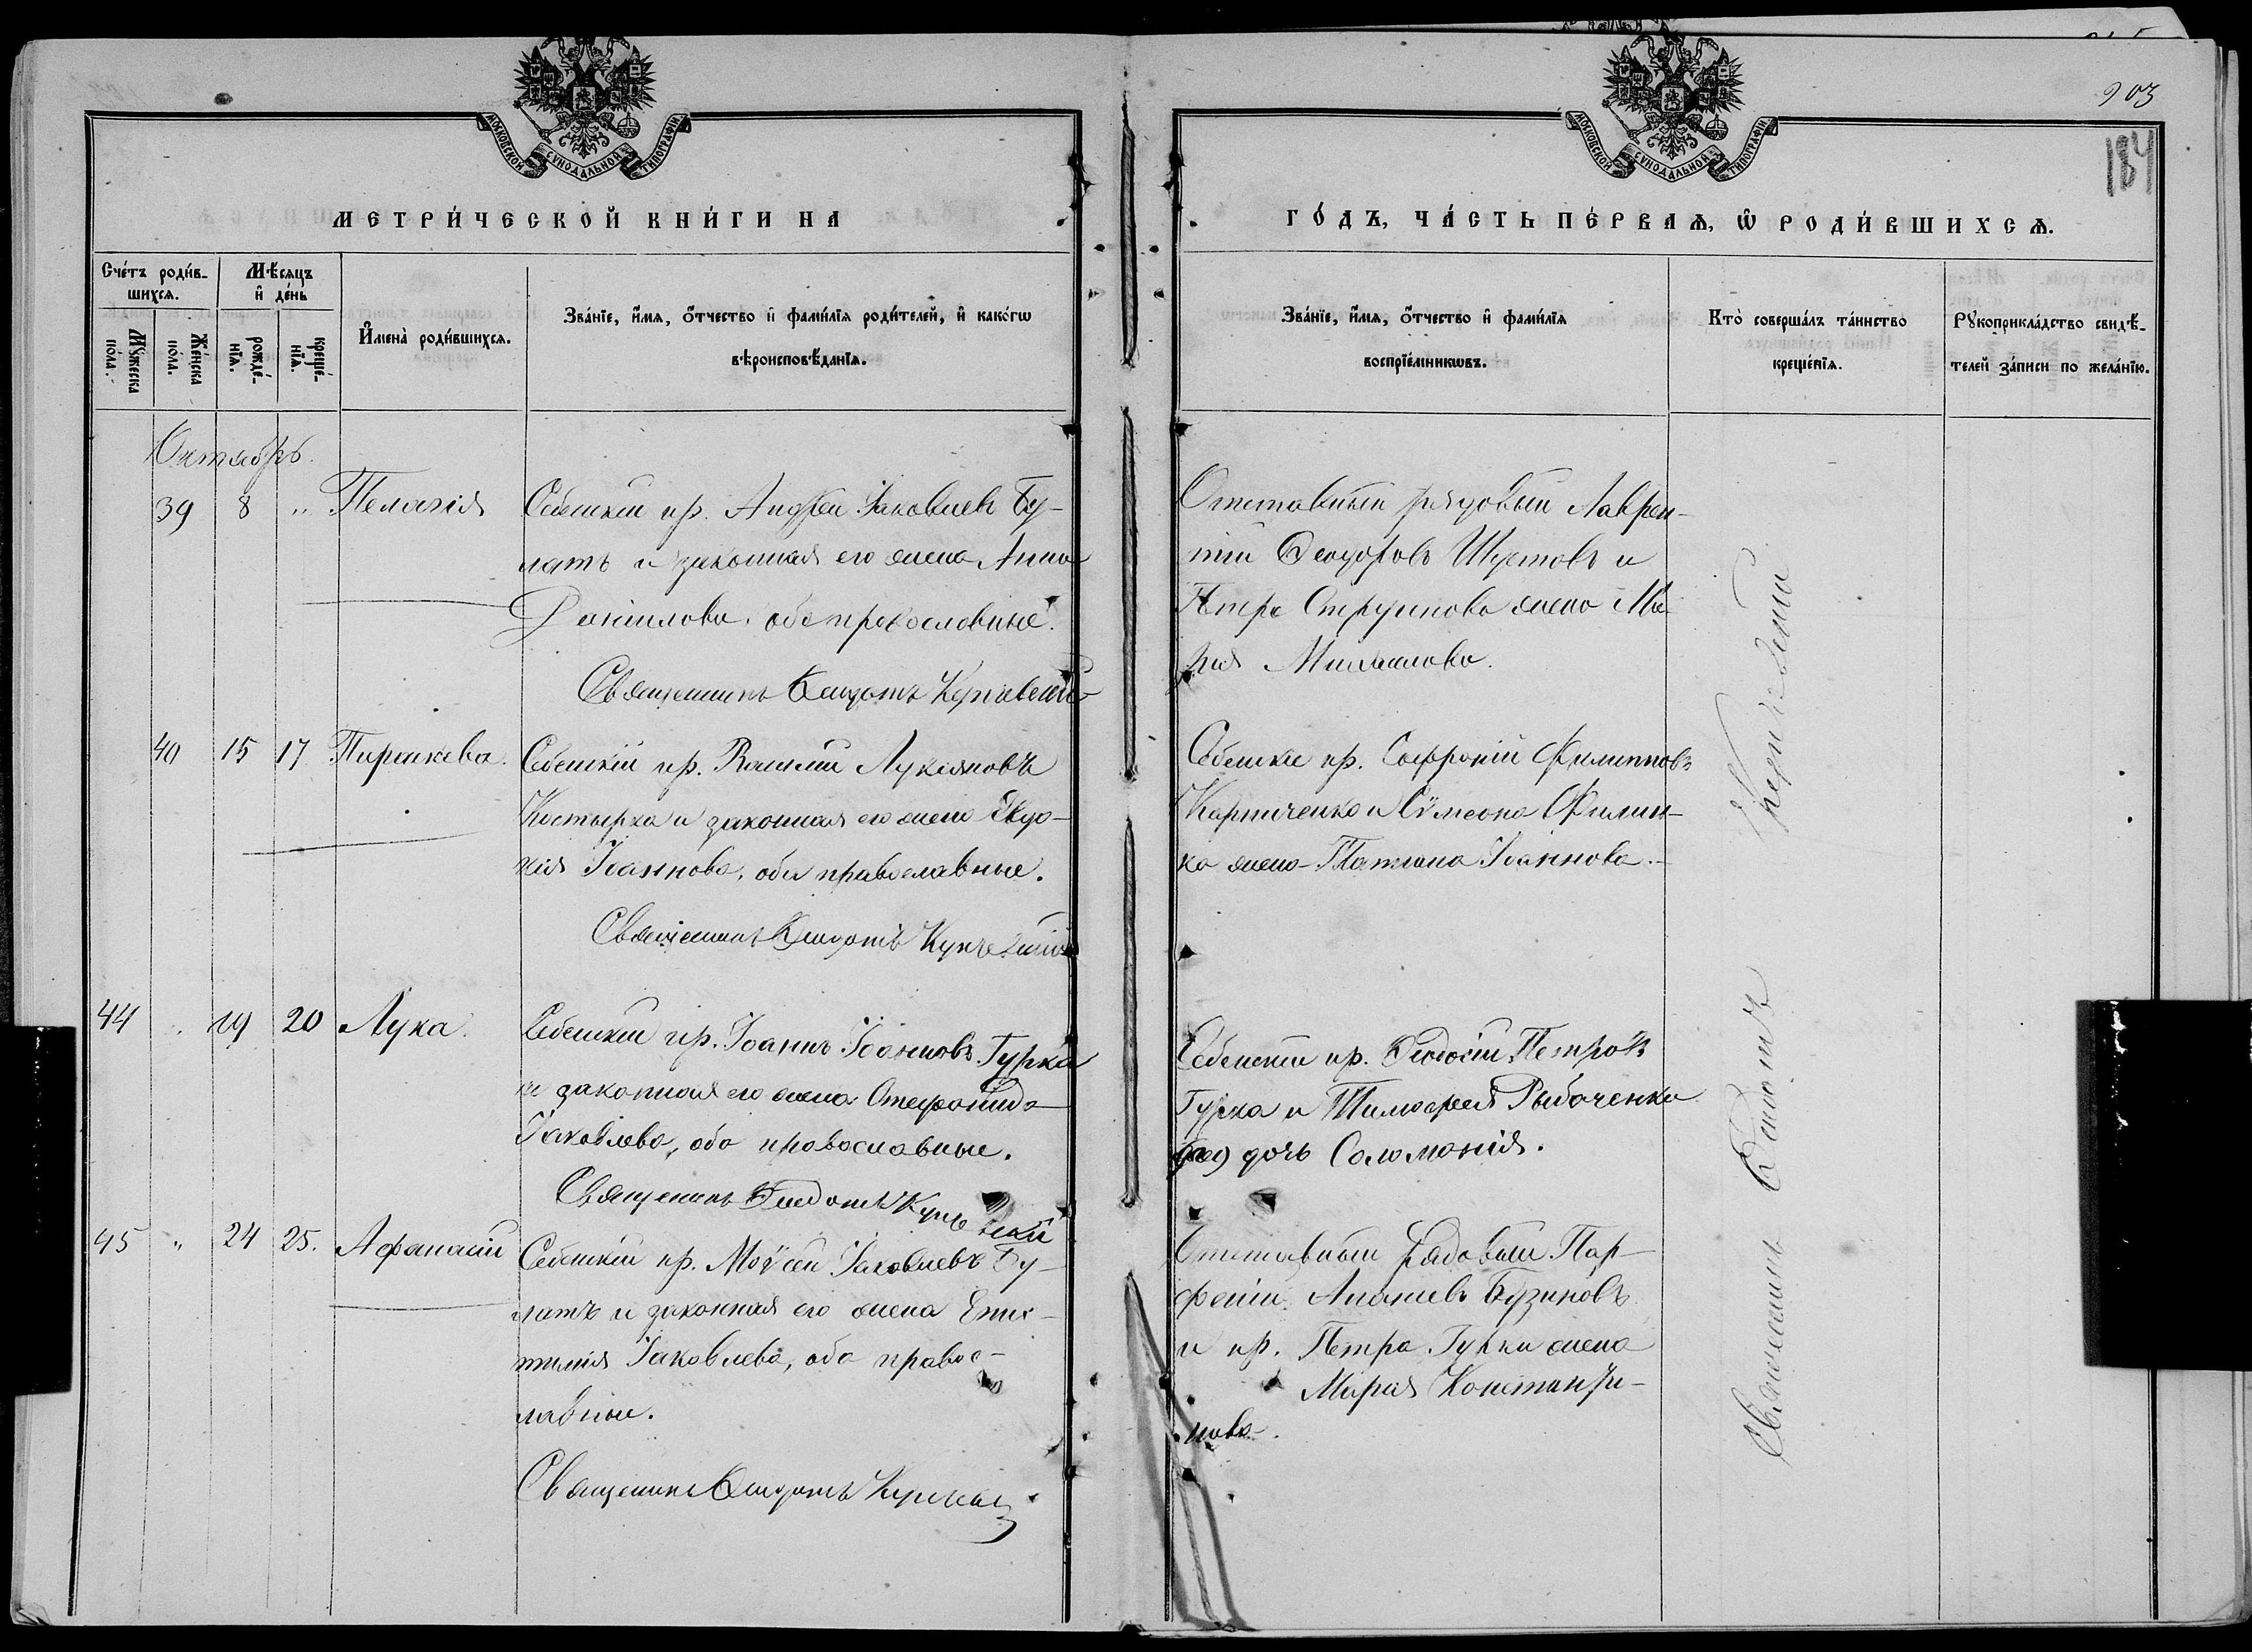 903
184
МОСКОВСКОЙ СУНОДАЛЬНОЙ ТИПОГРАФІИ
МОСКОВСКОЙ СУНОДАЛЬНОЙ ТИПОГРАФІИ
МЕТРИ́ЧЕСКОЙ КНИ́ГИ НА
ГО́ДЪ, ЧА́СТЬ ПЕ́РВАѦ, Ѿ РОДИ́ВШИХСѦ.
Сче́тъ роди́в-
шихсѧ.
Мꙋ́жеска по́ла.
Же́нска по́ла.
Мѣ́сѧцъ
и҆ де́нь
рожде́-
нїѧ.
креще́-
нїѧ.
И҆мена̀ роди́вшихсѧ.
Зва́нїе, и҆́мѧ, ѻ҆́тчество и҆ фами́лїѧ роди́телей, и҆ како́гѡ
вѣроисповѣ́данїѧ.
Зва́нїе, и҆́мѧ, ѻ҆́тчество и҆ фами́лїѧ
воспрїе́мникѡвъ.
Кто̀ соверша́лъ та́инство
креще́нїѧ.
Рꙋкоприкла́дство свидѣ́-
телей за́писи по жела́нїю.
Октябрь.
39 8 „ Пелагія
Себешкій кр. Андрей Іаковлевъ Бу-
латъ и законная его жена Анна
Даніилова, оба православные.
Священникъ Ѳеодотъ
Отставный рядовый Лаврен-
тій Ѳеодоровъ Шустовъ и
Петра Струннова жена Ма-
рія Михаилова.
40 15 17 Параскева.
Себешкій кр. Василій Лукіяновъ
Костырка и законная его жена Евдо-
кія Іоаннова, оба православные.
Священникъ Ѳеодотъ
Себешкіе кр. Софроній Филипповъ
Карпиченко и Сѵмеона Филип-
ка жена Татіана Іоаннова.
44 „ 19 20 Лука.
Себешкій кр. Іоаннъ Іоанновъ Гурка
и законная его жена Стефанида
Іаковлева, оба православные.
Священникъ Ѳеодотъ
Себешкій кр. Ѳеодосій Петровъ
Гурка и Тимоѳея Рыбаченка
дочь Соломонія.
45 „ 24 25. Афанасій
Себешкій кр. Моѵсей Іаковлевъ Бу-
латъ и законная его жена Епис-
тимія Іаковлева, оба правос-
лавные.
Священникъ Ѳеодотъ
Отставный рядовый Пар-
феній Ананіевъ Бузиновъ
и кр. Петра Гурки жена
Марія Константи-
нова.
Священникъ Ѳеодотъ